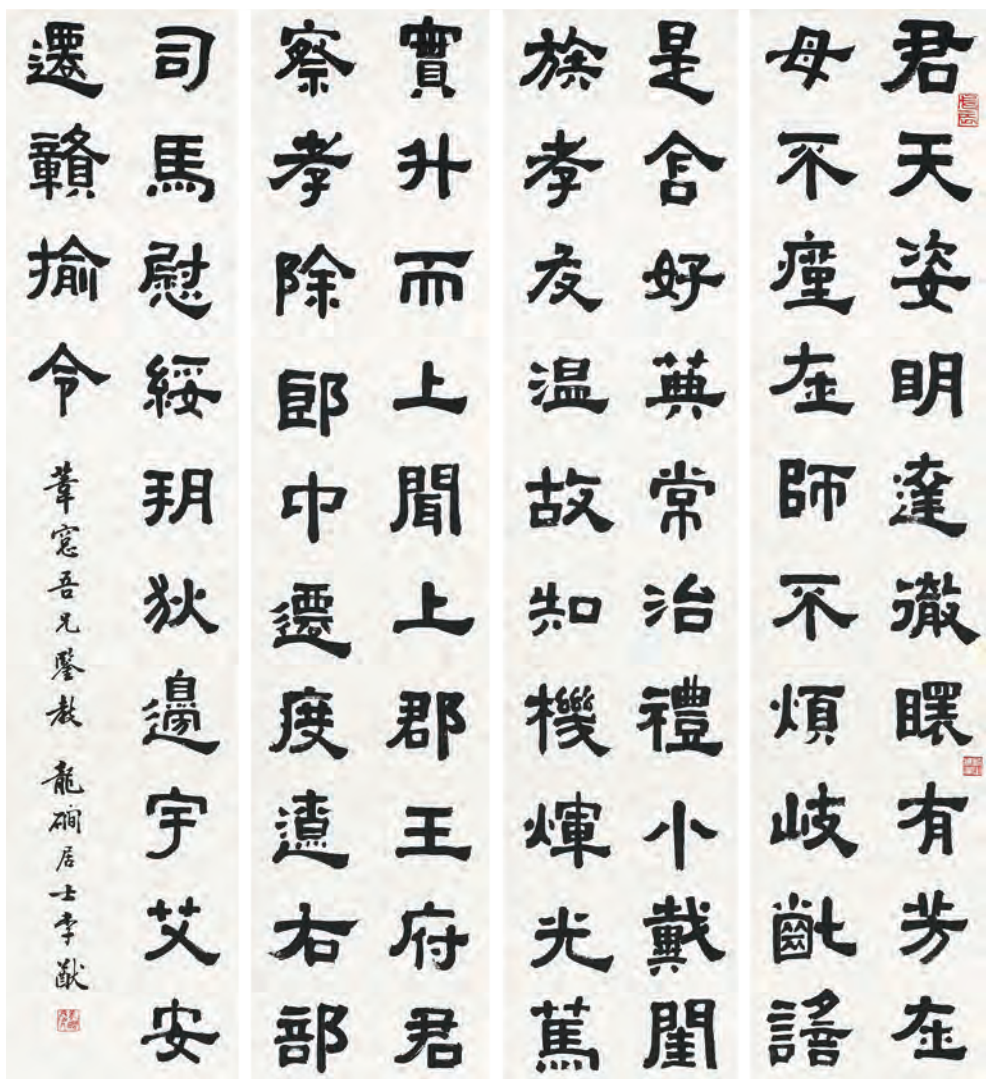 君天姿明達徹有芳在
母不痤在師不煩岐齔
是含好典常治禮小戴閨
族孝友温故知機煇光篤
實升而上聞上郡王府君
察孝除郎中遷度遼右部
司馬慰綏朔狄邊宇艾安
遷贛揄令
葦窓吾兄鑒教 龍磵居士李猷